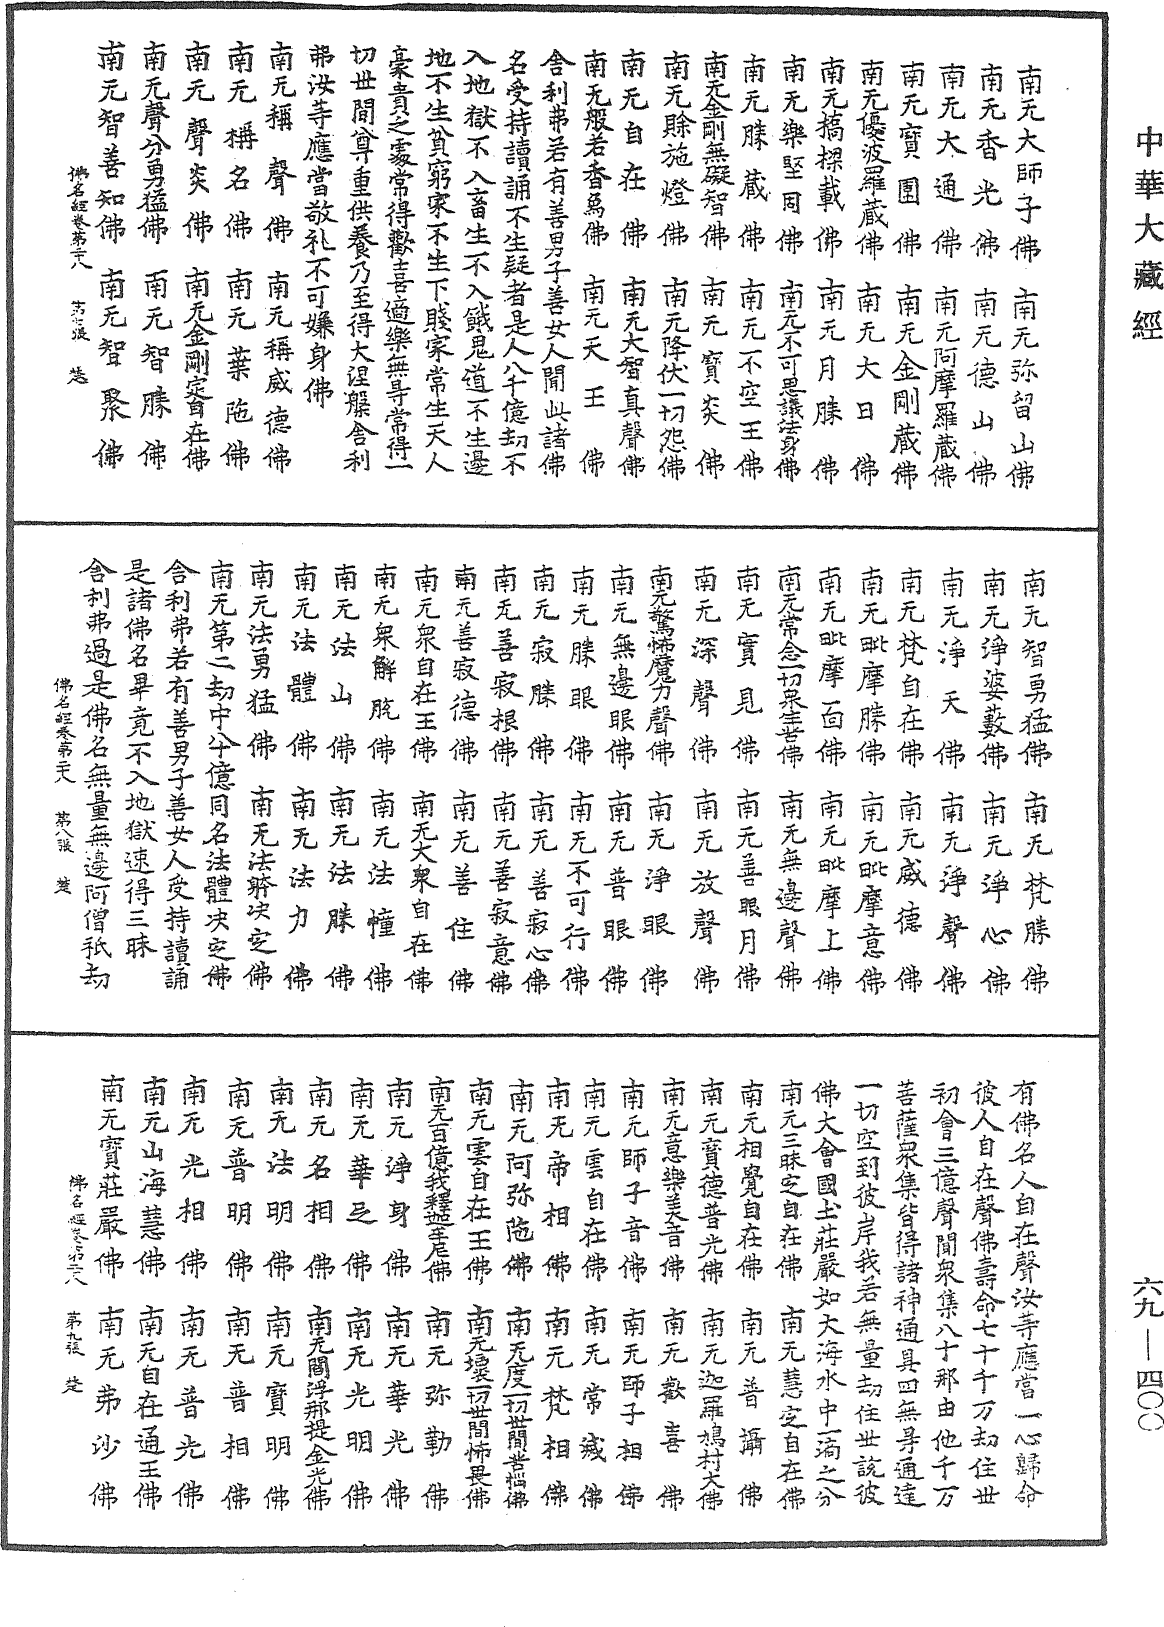 中華大藏經
南无大師子佛　南无弥留山佛
南无香光佛　南无德山佛
南无大通佛　南无阿摩羅藏佛
南无寶圍佛　南无金剛藏佛
南无優波羅藏佛　南无大日佛
南无撟樑載佛　南无月勝佛
南无樂堅固佛　南无不可思議法身佛
南无勝藏佛　南无不空王佛
南无金剛無礙智佛　南无寶炎佛
南无賒施燈佛　南无降伏一切怨佛
南无自在佛　南无大智真聲佛
南无般若香爲佛　南无天王佛
舍利弗若有善男子善女人聞此諸佛
名受持讀誦不生疑者是人八千億劫不
入地獄不入畜生不入餓鬼道不生邊
地不生貧窮家不生下賤家常生天人
豪貴之處常得歡喜適樂無㝵常得一
切世間尊重供養乃至得大涅槃舍利
弗汝等應當敬礼不可嫌身佛
南无稱聲佛　南无稱威德佛
南无稱名佛　南无葉陁佛
南无聲炎佛　南无金剛密自在佛
南无聲分勇猛佛　南无智勝佛
南无智善知佛　南无智聚佛
佛名經卷第二十八　第七張　楚
南无智勇猛佛　南无梵勝佛
南无淨婆藪佛　南无淨心佛
南无淨天佛　南无淨聲佛
南无梵自在佛　南无威德佛
南无毗摩勝佛　南无毗摩意佛
南无毗摩面佛　南无毗摩上佛
南无常念一切衆生苦佛　南无無邊聲佛
南无實見佛　南无善眼月佛
南无深聲佛　南无放聲佛
南无驚怖魔力聲佛　南无淨眼佛
南无無邊眼佛　南无普眼佛
南无勝眼佛　南无不可行佛
南无寂勝佛　南无善寂心佛
南无善寂根佛　南无善寂意佛
南无善寂德佛　南无善住佛
南无衆自在王佛　南无大衆自在佛
南无衆解脫佛　南无法幢佛
南无法山佛　南无法勝佛
南无法體佛　南无法力佛
南无法勇猛佛　南无法體决定佛
南无第二劫中八十億同名法體决定佛
舍利弗若有善男子善女人受持讀誦
是諸佛名畢竟不入地獄速得三昧
舍利弗過是佛名無量無邊阿僧祇劫
佛名經卷第二十八　第八張　楚
有佛名人自在聲汝等應當一心歸命
彼人自在聲佛壽命七十千万劫住世
初會三億聲聞衆集八十那由他千万
菩薩衆集皆得諸神通具四無㝵通達
一切空到彼岸我若無量劫住世說彼
佛大會國土莊嚴如大海水中一渧之分
南无三昧定自在佛　南无慧定自在佛
南无相覺自在佛　南无普攝佛
南无寶德普光佛　南无迦羅鳩村大佛
南无意樂美音佛　南无歡喜佛
南无師子音佛　南无師子相佛
南无雲自在佛　南无常滅佛
南无帝相佛　南无梵相佛
南无阿弥陁佛　南无度一切世間苦惱佛
南无雲自在王佛　南无壞一切世間怖畏佛
南无百億我釋迦牟尼佛　南无弥勒佛
南无淨身佛　南无華光佛
南无華足佛　南无光明佛
南无名相佛　南无閻浮那提金光佛
南无法明佛　南无寶明佛
南无普明佛　南无普相佛
南无光相佛　南无普光佛
南无山海慧佛　南无自在通王佛
南无寶莊嚴佛　南无弗沙佛
佛名經卷第二十八　第九張　楚
六九—四〇〇